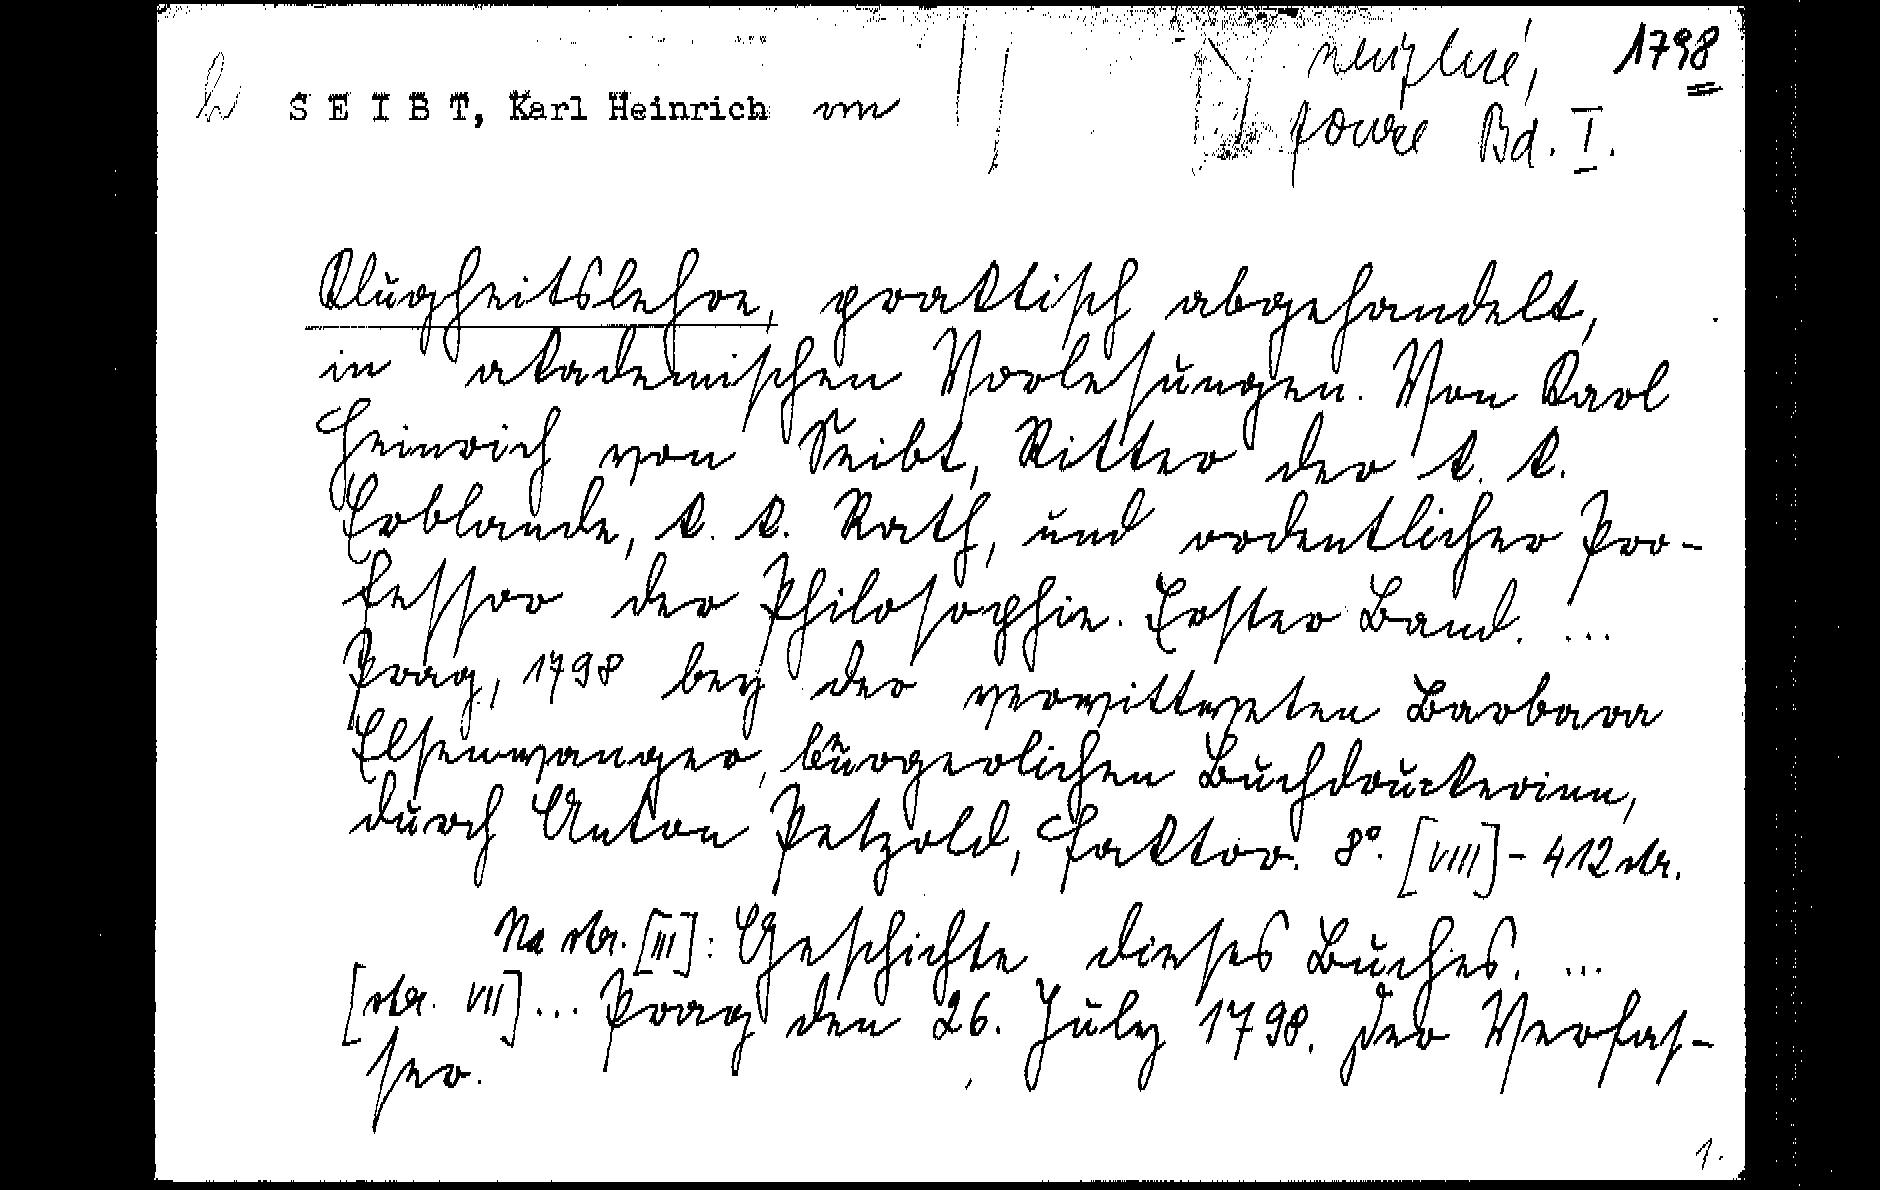 neúplné, 1798
S E I B T, Karl Heinrich von
pouze Bd. I.
Klugheitslehre, praktisch abgehandelt,
in akademischen Vorlesungen. Von Karl
Heinrich von Seibt, Ritter der k. k.
Erblande, k. k. Rath, und ordentlicher Pro-
fessor der Philosophie. Erster Band. ...
Prag, 1798 bey der verwittweten Barbara
Elsenwanger, bürgerlichen Buchdruckerinn,
durch Anton Petzold, Faktor. 8°. [VIII] - 412 str.
Na str. [III]: Geschichte dieses Buches. ...
[str. VII] ... Prag den 26. July 1798. Der Verfas-
ser.
1.